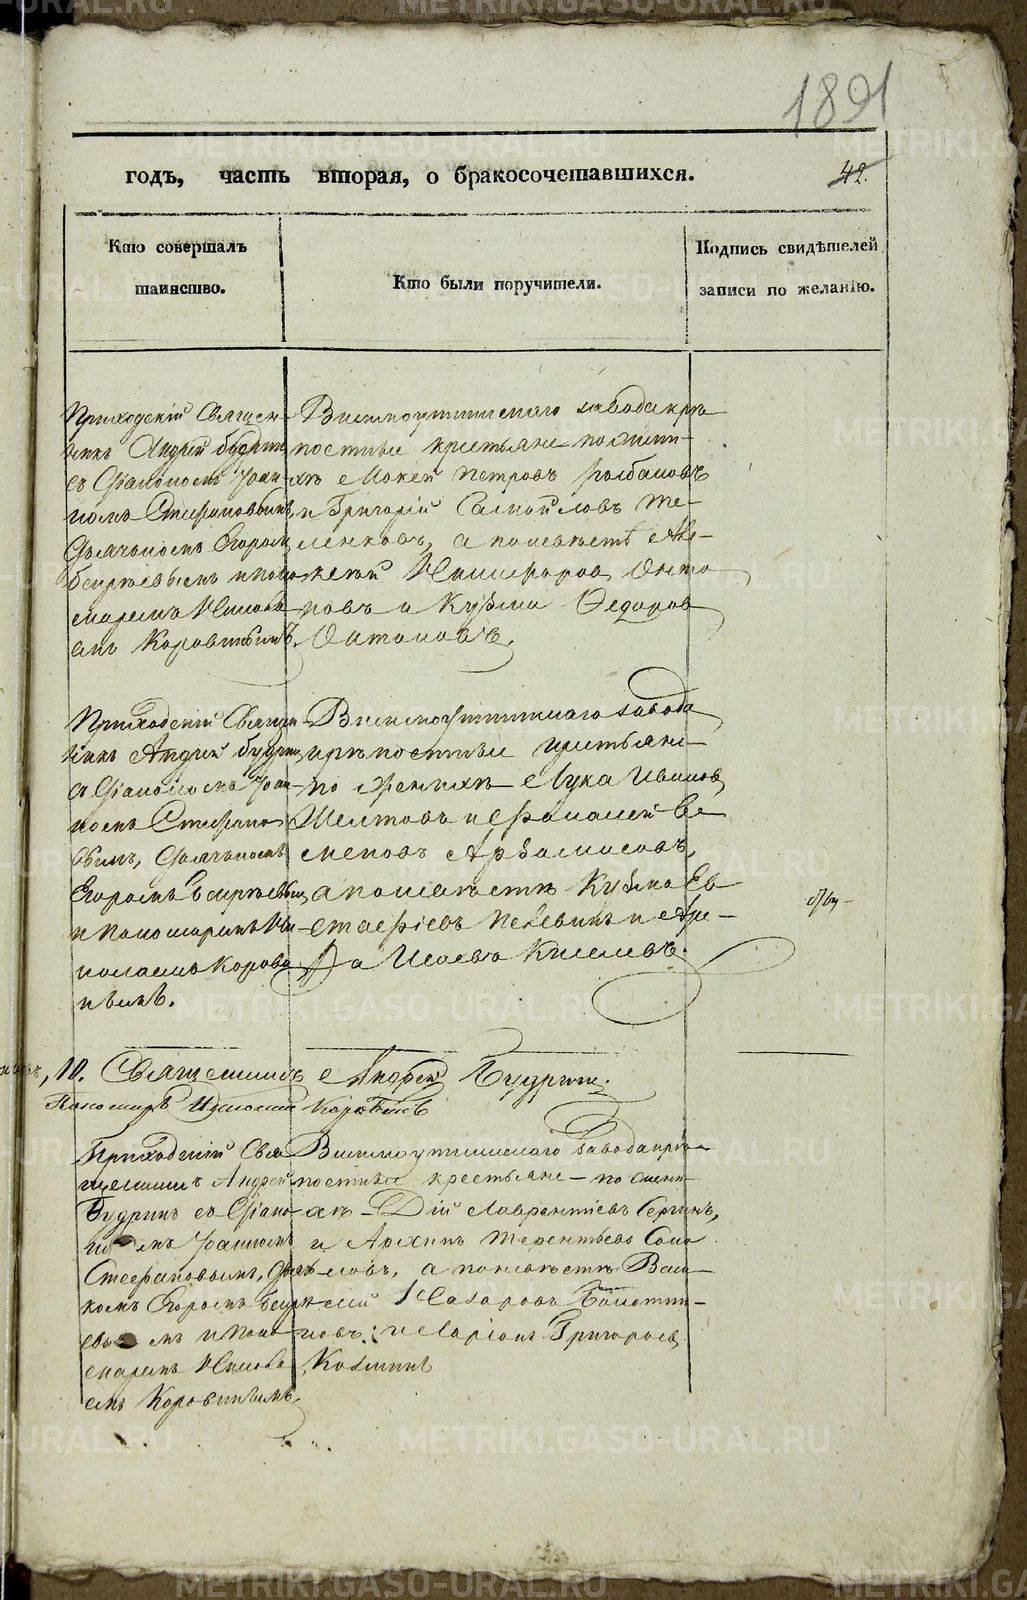 1891
42.
годъ, часть вторая, о бракосочетавшихся.
Кто совершалъ
таинство.
Кто были поручители.
Подпись свидѣтелей
записи по желанію.
Приходскій Священ-
никъ Андрей Будрин
съ Діакономъ Іоан-
номъ Стефановымъ,
Дьячкомъ Егором
и поно-
маремъ
емъ Коровинымъ.
Висимоуткинскаго завода крѣ-
постные крестьяне по жени-
хѣ Мокей Петровъ Колбасовъ
и Григорій Самойловъ Те-
ленковъ, а по невѣстѣ Але-
ксѣй Никифоров Анто
новъ и Кузма Федоров
Антоновъ.
Приходскій Священ-
никъ Андрей Будрин
съ Діакономъ Іоан-
номъ Стефано
вымъ, Дьячкомъ
Егоромъ
и Пономаремъ
Корови
нымъ.
Висимоуткинскаго завода
крѣпостные крестьяне
по женихѣ Лука Иванов
Шептовъ и Фаламей Се
меновъ Арзамасовъ,
а по невѣстѣ Кузма Ев
стафіевъ Пелевинъ и
Исаевъ Киселевъ.
10. Священникъ Андрей Будрин.
Пономарь Коровинъ
Приходскій Свя
щенникъ Андрей
Будринъ съ Діако
номъ Іоанномъ
Стефановымъ, Дьяч
комъ Егоромъ
и Поно
маремъ
емъ Коровинымъ.
Висимоуткинскаго завода крѣ-
постные крестьяне по жени-
хѣ Дій Лаврентіевъ Сергинъ,
и Архипъ Терентьевъ Соко
ловъ, а по невѣстѣ Васи
лій Назаровъ Болотни-
ковъ и Ларіонъ Григорьев
Козминъ
METRIKI.GASO-URAL.RU